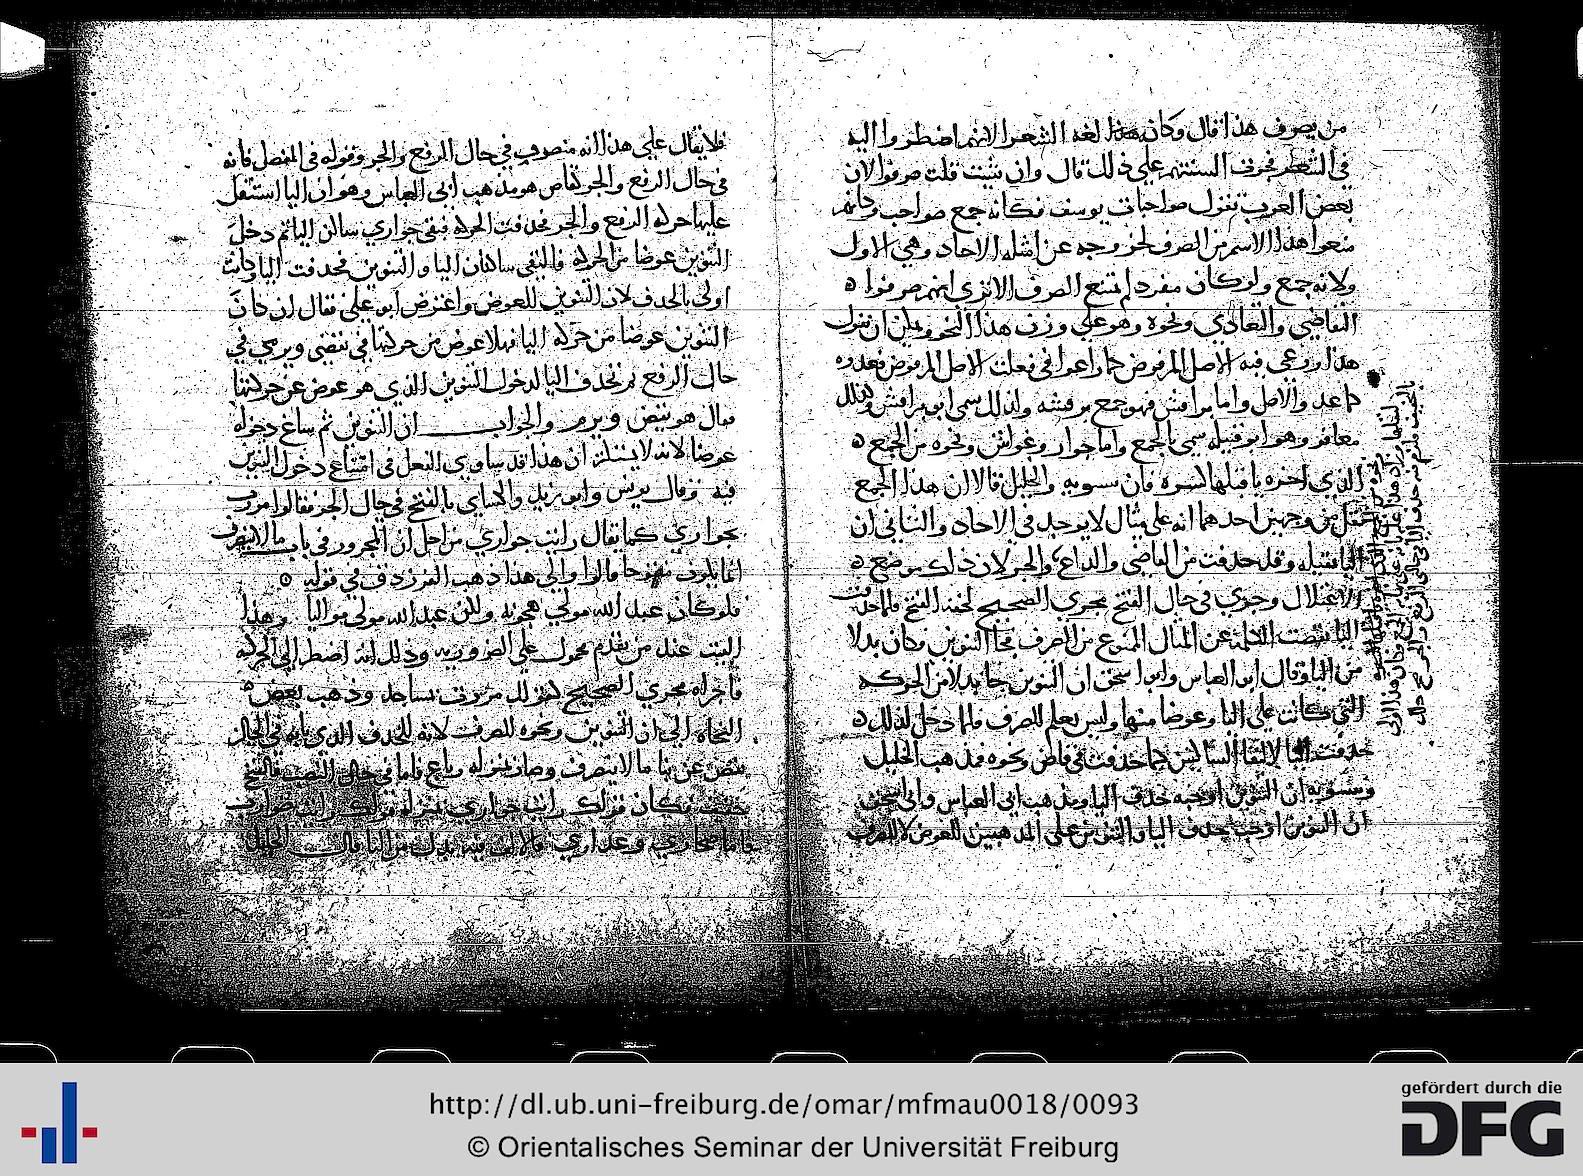 من يصرف هذا قال وكان هذا لغة الشعرا لانهم اضطروا اليه
في الشعر فجرت السنتهم على ذلك قال وان شئت قلت صرفوا لان
بعض العرب تقول صواحبات يوسف فكانه جمع صواحب وانهم
منعوا هذا الاسم من الصرف لخروجه عن امثله الاحاد وهي الاول
ولانه جمع ولو كان مفردا لم تمنع الصرف الا تري انهم صرفوا
القاضي والغادي ونحوه وهو على وزن هذا النحو ويمكن ان نقول
هذا روعي فيه الاصل المرفوض كما راعوا في فعلت الاصل المرفوض فعدوه
كما عد والاصل واما براقش فهو جمع برقشه ولذلك سمي ابو براقش وكذلك
معافر وهو ابو قبيله سمي بالجمع واما جوار وغواش ونحوه من الجمع
الذي اخره يا قبلها كسره فان سيبويه والخليل قالا ان هذا الجمع
ثقل من وجهين احدهما انه على مثال لا يوجد في الاحاد والثاني ان
اليا ثقيله وقد حذفت من القاضي والداع والجر لان ذلك موضع
الاعتلال وجري في حال الفتح مجري الصحيح لخفه الفتح فلما حذفت
اليا نقصت الكلمه عن المثال الممنوع من الصرف فجا التنوين وكان بدلا
من اليا وقال ابو العباس وابو اسحق ان التنوين جا بدلا من الحركه
التي كانت على اليا وعوضا منها وليس بعلم للصرف فلما دخل لذلك
حذفت اليا لالتقا الساكنين كما حذفت في قاض ونحوه فمذهب الخليل
وسيبويه ان التنوين اوجبه حذف اليا ومذهب ابي العباس وابي اسحق
ان التنوين اوجب حذف اليا والتنوين على المذهبين للعوض لا للصرف
فلا يقال على هذا انه منصوب في حال الرفع والجر وقوله في المفصل فانه
في حال الرفع والجر كقاض هو مذهب ابي العباس وهو ان اليا استثقل
عليها حركه الرفع والجر فحذفت الحركه فبقي جواري ساكن اليا ثم دخل
التنوين عوضا من الحركه فالتقى ساكنان اليا والتنوين فحذفت اليا وكانت
اولى بالحذف لان التنوين للعوض واعترض ابو علي فقال ان كان
التنوين عوضا من حركه اليا فهلا عوض من حركتها في يقضي ويرمي في
حال الرفع ثم تحذف اليا لدخول التنوين الذي هو عوض عن حركتها
فقال هو يقض ويرم والجواب ان التنوين ثم ساغ دخوله
عوضا لانه لا يستلزم ان هذا قد ساوي الفعل في امتناع دخول التنوين
فيه وقال يونس وابو زيد والكساي بالفتح في حال الجر فقالوا مررت
بجواري كما يقال رايت جواري من اجل ان المجرور في باب ما لا ينصرف
انما يكون مفتوحا قالوا والى هذا ذهب الفرزدق في قوله
فلو كان عبد الله مولى هجوته ولكن عبد الله مولى مواليا وهذا
البيت عند من تقدم محمول على الضروره وذلك انه اضطر الى الحركه
فاجراه مجري الصحيح كقولك مررت بمساجد وذهب بعض
النحاه الى ان التنوين ونحوه للصرف لانه للحذف الذي نابه في الحال
نقص عن بنا ما لا ينصرف وصار بمنزله رباع فاما في حال النصب فالفتح
خفت فكان قولك رايت جواري بمنزله قولك رايت ضوارب
فاما صحاري وعذاري فالالف فيه بدل من اليا قال الخليل
http://dl.ub.uni-freiburg.de/omar/mfmau0018/0093
© Orientalisches Seminar der Universität Freiburg
gefördert durch die
DFG